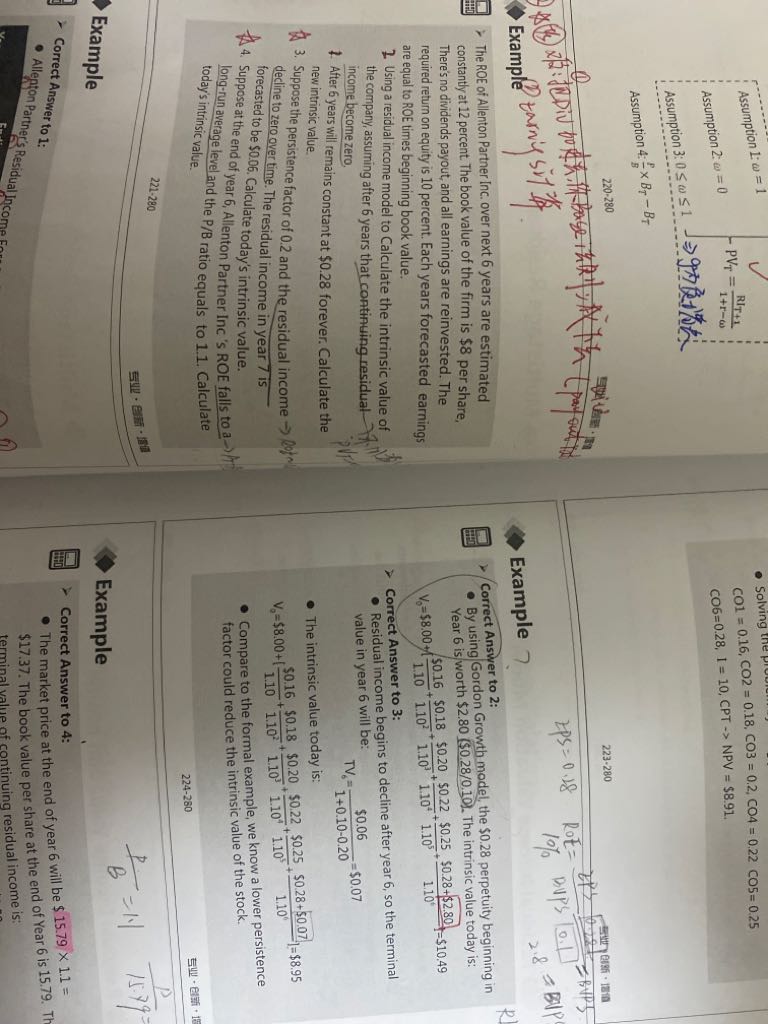 Assumption 1: ω = 1
Assumption 2: ω = 0
Assumption 3: 0 ≤ ω ≤ 1
PV_T = RI_{T+1} / (1+r−ω)
Assumption 4: P/B × B_T − B_T
220-280
专业 · 创新 · 增值
Example
② earnings
➢ The ROE of Allenton Partner Inc. over next 6 years are estimated
constantly at 12 percent. The book value of the firm is $8 per share,
There's no dividends payout, and all earnings are reinvested. The
required return on equity is 10 percent. Each years forecasted earnings
are equal to ROE times beginning book value.
Using a residual income model to Calculate the intrinsic value of
the company, assuming after 6 years that continuing residual
income become zero.
After 6 years will remains constant at $0.28 forever. Calculate the
new intrinsic value.
3. Suppose the persistence factor of 0.2 and the residual income
decline to zero over time. The residual income in year 7 is
forecasted to be $0.06. Calculate today's intrinsic value.
4. Suppose at the end of year 6, Allenton Partner Inc 's ROE falls to a
long-run average level and the P/B ratio equals to 1.1. Calculate
today's intrinsic value.
221-280
专业 · 创新 · 增值
Example
➢ Correct Answer to 1:
● Allenton Partner's Residual Income
CO1 = 0.16, CO2 = 0.18, CO3 = 0.2, CO4 = 0.22 CO5 = 0.25
CO6=0.28, I = 10, CPT -> NPV = $8.91.
223-280
专业 · 创新 · 增值
EPS = 0.28
ROE =
10%
Example
➢ Correct Answer to 2:
● By using Gordon Growth model, the $0.28 perpetuity beginning in
Year 6 is worth $2.80 ($0.28/0.10). The intrinsic value today is:
V₀=$8.00+[$0.16/1.10 + $0.18/1.10² + $0.20/1.10³ + $0.22/1.10⁴ + $0.25/1.10⁵ + $0.28+$2.80/1.10⁶]=$10.49
➢ Correct Answer to 3:
● Residual income begins to decline after year 6, so the terminal
value in year 6 will be:
TV₆ = $0.06 / (1+0.10-0.20) = $0.07
● The intrinsic value today is:
V₀=$8.00+[$0.16/1.10 + $0.18/1.10² + $0.20/1.10³ + $0.22/1.10⁴ + $0.25/1.10⁵ + $0.28+$0.07/1.10⁶]=$8.95
● Compare to the formal example, we know a lower persistence
factor could reduce the intrinsic value of the stock.
224-280
专业 · 创新 · 增值
P/B = 1.1
Example
➢ Correct Answer to 4:
● The market price at the end of year 6 will be $15.79 × 1.1 =
$17.37. The book value per share at the end of Year 6 is 15.79.
terminal value of continuing residual income is: